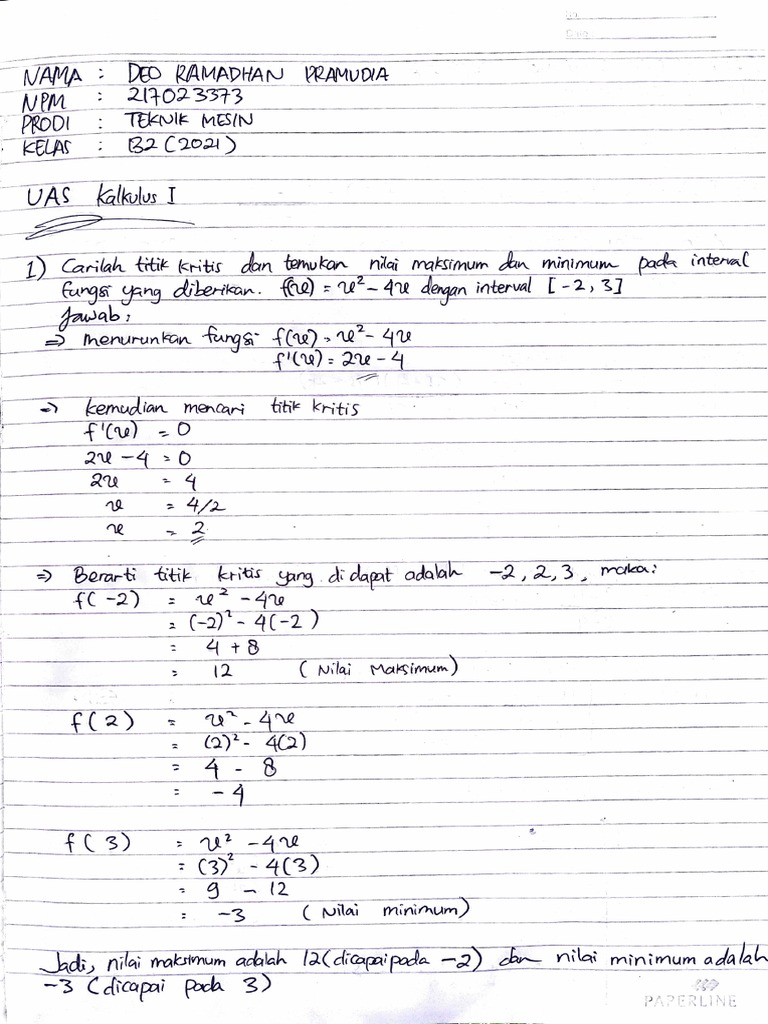 NAMA : DEO RAMADHAN PRAMUDIA
NPM : 217023373
PRODI : TEKNIK MESIN
KELAS : B2 (2021)
UAS Kalkulus I
1) Carilah titik kritis dan temukan nilai maksimum dan minimum pada interval
fungsi yang diberikan. f(x) = x² - 4x dengan interval [-2, 3]
Jawab:
⇒ menurunkan fungsi f(x) = x² - 4x
f'(x) = 2x - 4
⇒ kemudian mencari titik kritis
f'(x) = 0
2x - 4 = 0
2x = 4
x = 4/2
x = 2
⇒ Berarti titik kritis yang didapat adalah -2, 2, 3, maka:
f(-2) = x² - 4x
= (-2)² - 4(-2)
= 4 + 8
= 12 (Nilai Maksimum)
f(2) = x² - 4x
= (2)² - 4(2)
= 4 - 8
= -4
f(3) = x² - 4x
= (3)² - 4(3)
= 9 - 12
= -3 (Nilai minimum)
Jadi, nilai maksimum adalah 12 (dicapai pada -2) dan nilai minimum adalah
-3 (dicapai pada 3)
PAPERLINE